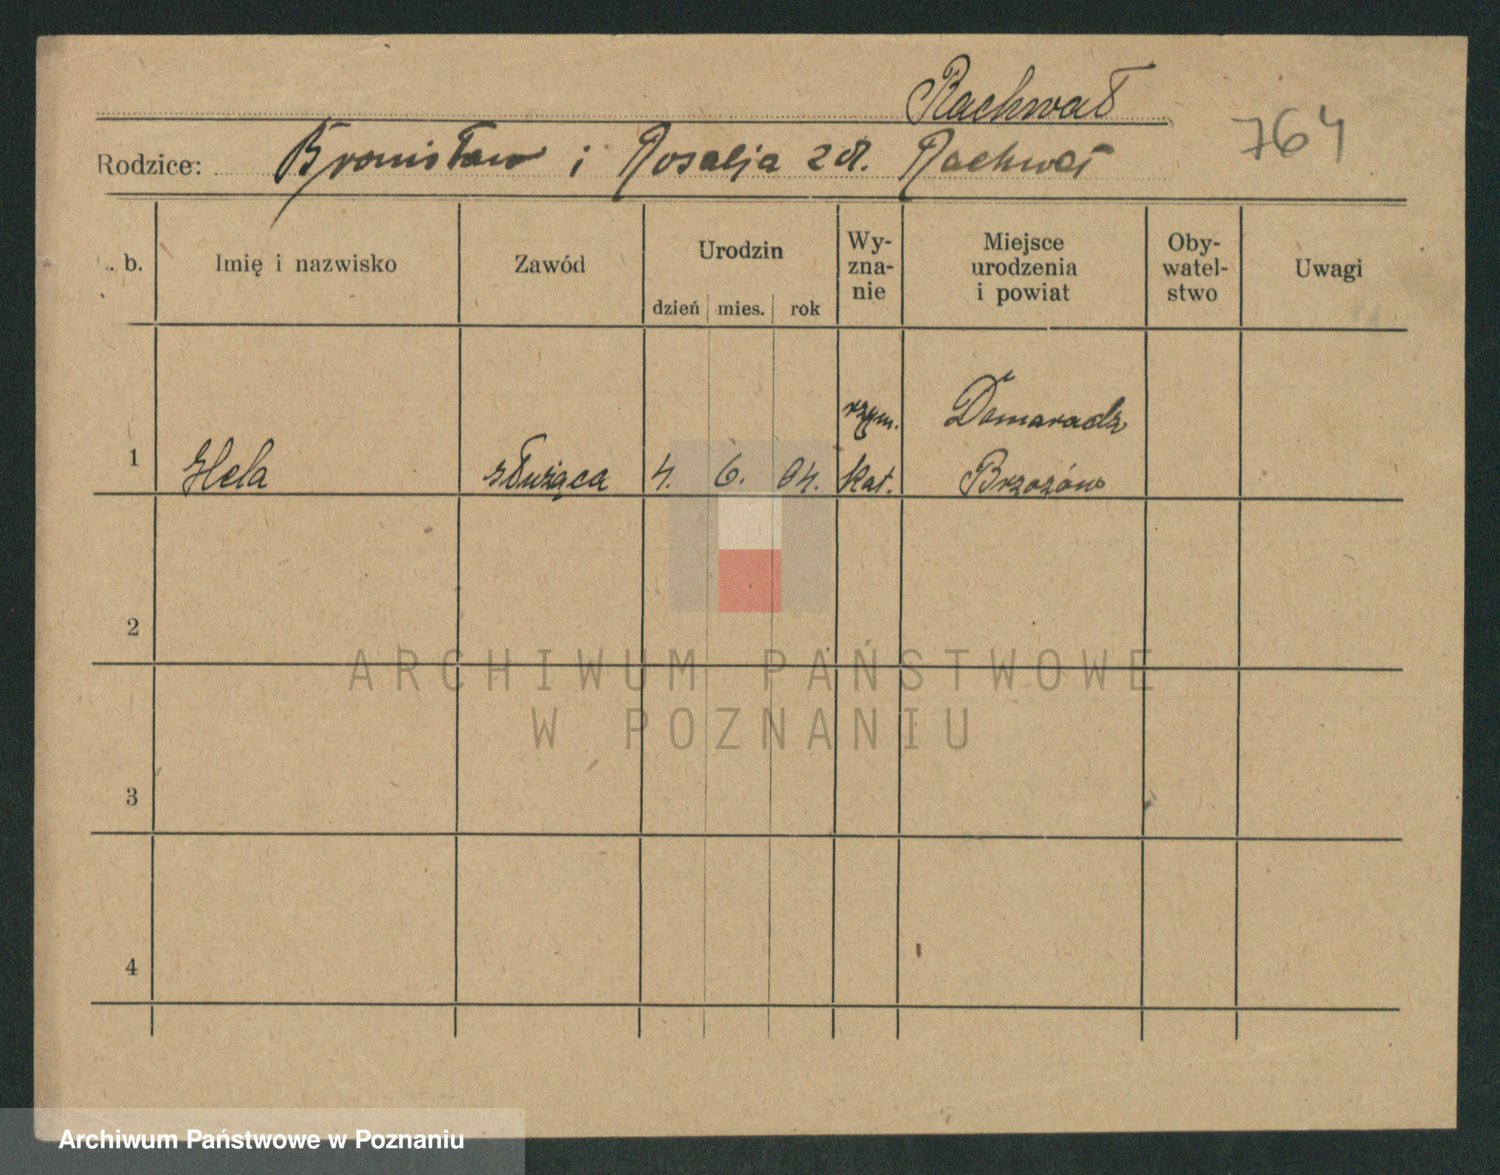 Rachwał
Rodzice: Bronisław i Rozalja z d. Rachwał 764
b. Imię i nazwisko Zawód Urodzin dzień mies. rok Wy-zna-nie Miejsce urodzenia i powiat Oby-watel-stwo Uwagi
1 Hela służąca 4. 6. 04. rzym. kat. Domaradz Brzozów
2
3
4
ARCHIWUM PAŃSTWOWE
W POZNANIU
Archiwum Państwowe w Poznaniu